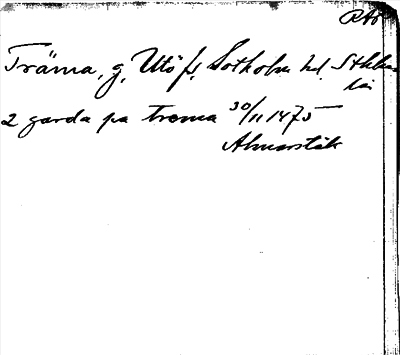 RAp
Träma, g, Utö sn, Sotholm hd, Sthlms
län
2 garda pa trema 30/11 1475
Almarstäk